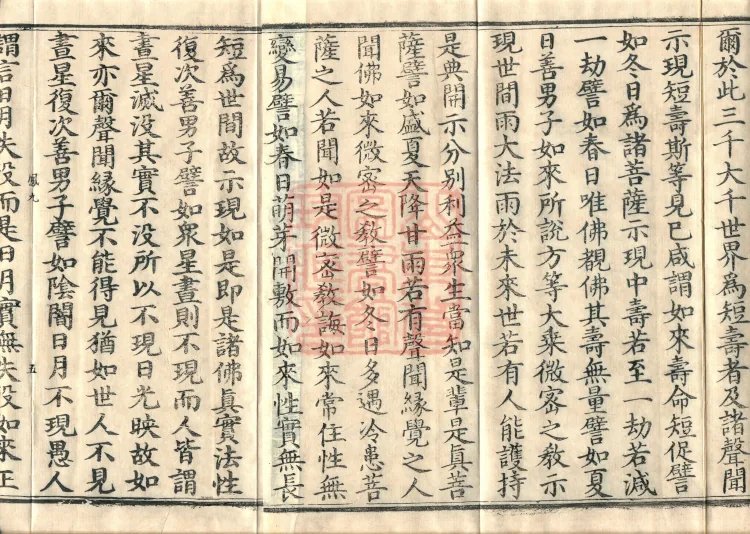 爾於此三千大千世界爲短壽者及諸聲聞
示現短壽斯等見已咸謂如來壽命短促譬
如冬日爲諸菩薩示現中壽若至一劫若減
一劫譬如春日唯佛覩佛其壽無量譬如夏
日善男子如來所說方等大乘微密之教示
現世間雨大法雨於未來世若有人能護持
是典開示分別利益衆生當知是輩是真菩
薩譬如盛夏天降甘雨若有聲聞緣覺之人
聞佛如來微密之教譬如冬日多遇冷患菩
薩之人若聞如是微密教誨如來常住性無
變易譬如春日萌芽開敷而如來性實無長
短爲世間故示現如是即是諸佛眞實法性
復次善男子譬如衆星晝則不現而人皆謂
晝星滅没其實不没所以不現日光映故如
來亦爾聲聞緣覺不能得見猶如世人不見
晝星復次善男子譬如陰闇日月不現愚人
鳳九 五
謂言日月失没而是日月實無失没如來正